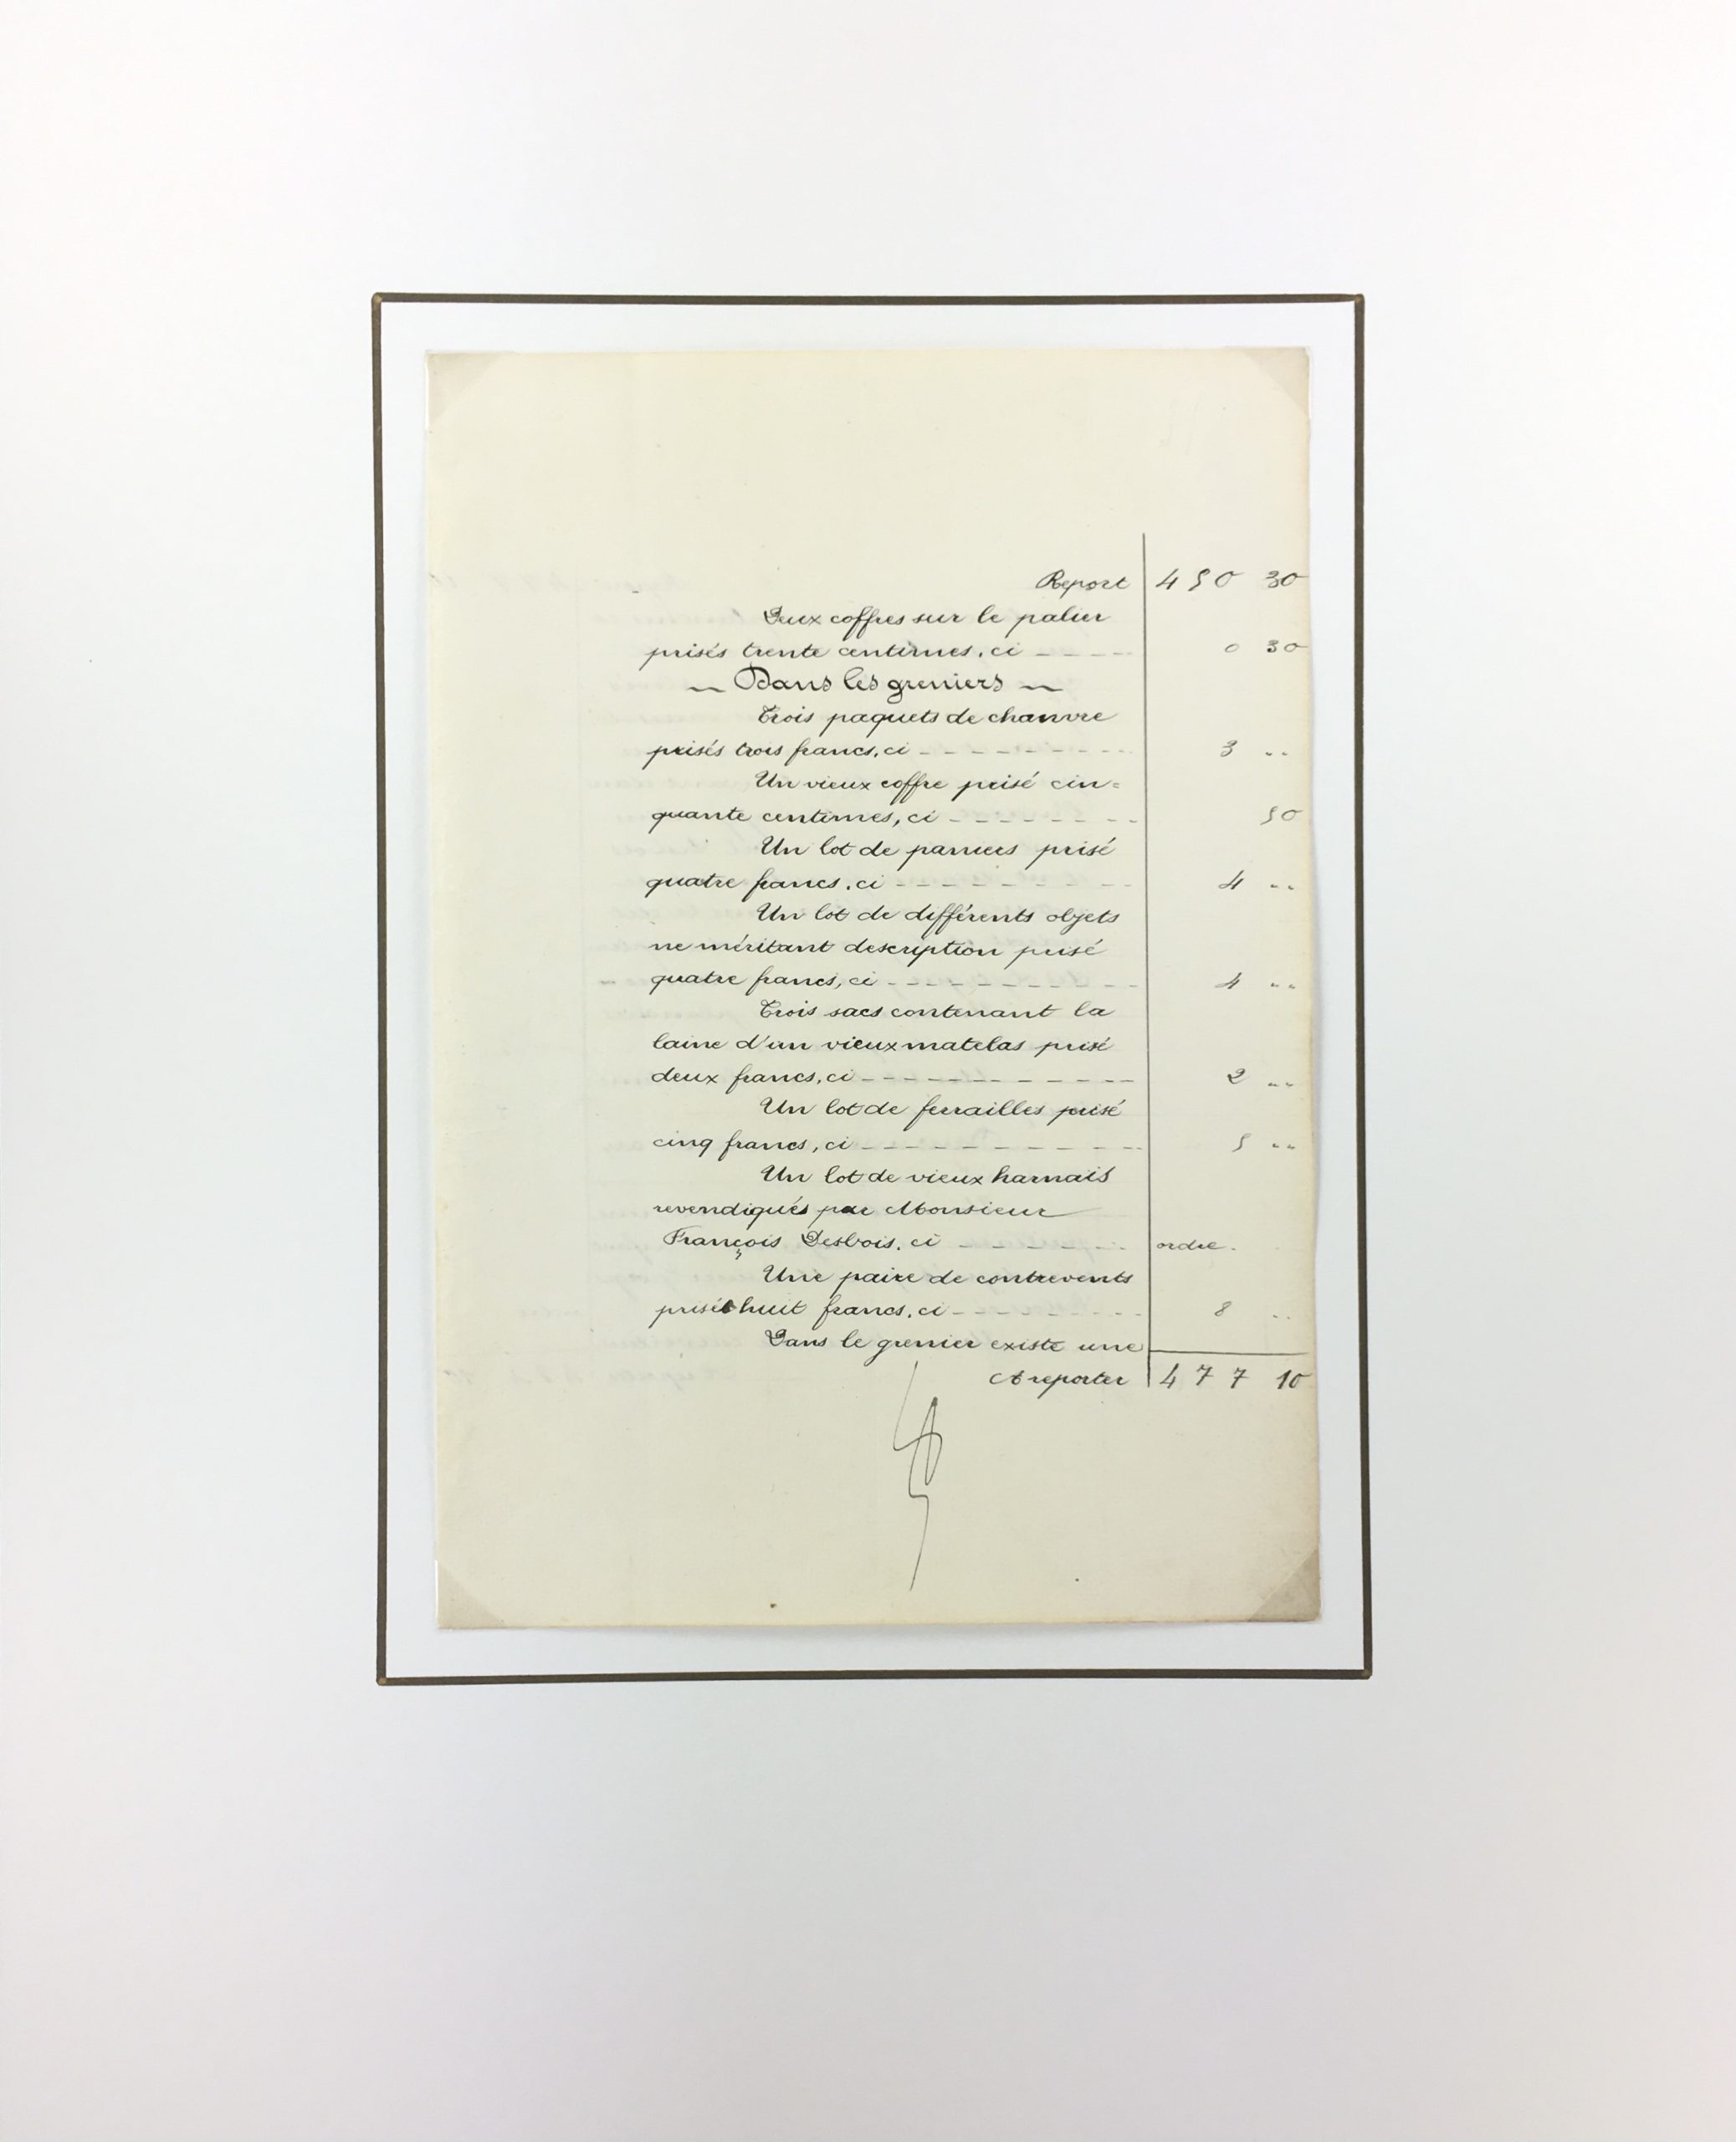 Report 450 30
Deux coffres sur le palier
prisés trente centimes, ci - - - - 0 30
~ Dans les greniers ~
Trois paquets de chanvre
prisés trois francs, ci - - - - - - - - - 3 ..
Un vieux coffre prisé cin=
quante centimes, ci - - - - - - - 50
Un lot de paniers prisé
quatre francs, ci - - - - - - - - - 4 ..
Un lot de différents objets
ne méritant description prisé
quatre francs, ci - - - - - - - - - - 4 ..
Trois sacs contenant la
laine d'un vieux matelas prisé
deux francs, ci - - - - - - - - - - - 2 ..
Un lot de ferrailles prisé
cinq francs, ci - - - - - - - - - - - 5 ..
Un lot de vieux harnais
revendiqués par Monsieur
François Desbois, ci - - - - - - - ordre.
Une paire de contrevents
prisés huit francs, ci - - - - - - - - 8 ..
Dans le grenier existe une
A reporter 477 10